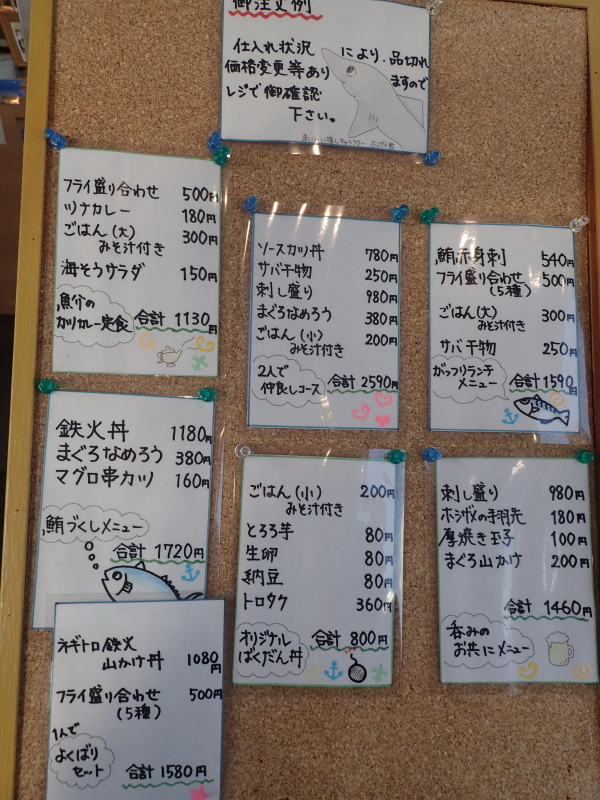 御注文例
仕入れ状況により、品切れ
価格変更等ありますので
レジで御確認
下さい。
フライ盛り合わせ 500円
ツナカレー 180円
ごはん(大) 300円
みそ汁付き
海そうサラダ 150円
魚介の
カリカレー定食
合計 1130円
ソースカツ丼 780円
サバ干物 250円
刺し盛り 980円
まぐろなめろう 380円
ごはん(小) 200円
みそ汁付き
2人で
仲良しコース
合計 2590円
鮪赤身刺 540円
フライ盛り合わせ 500円
(5種)
ごはん(大) 300円
みそ汁付き
サバ干物 250円
がっつりランチ
メニュー
合計 1590円
鉄火丼 1180円
まぐろなめろう 380円
マグロ串カツ 160円
鮪づくしメニュー
合計 1720円
ごはん(小) 200円
みそ汁付き
とろろ芋 80円
生卵 80円
納豆 80円
トロタク 360円
オリジナル
ばくだん丼
合計 800円
刺し盛り 980円
ホシザメの手羽先 180円
厚焼き玉子 100円
まぐろ山かけ 200円
合計 1460円
呑みの
お共にメニュー
ネギトロ鉄火
山かけ丼 1080円
フライ盛り合わせ 500円
(5種)
1人で
よくばり
セット
合計 1580円